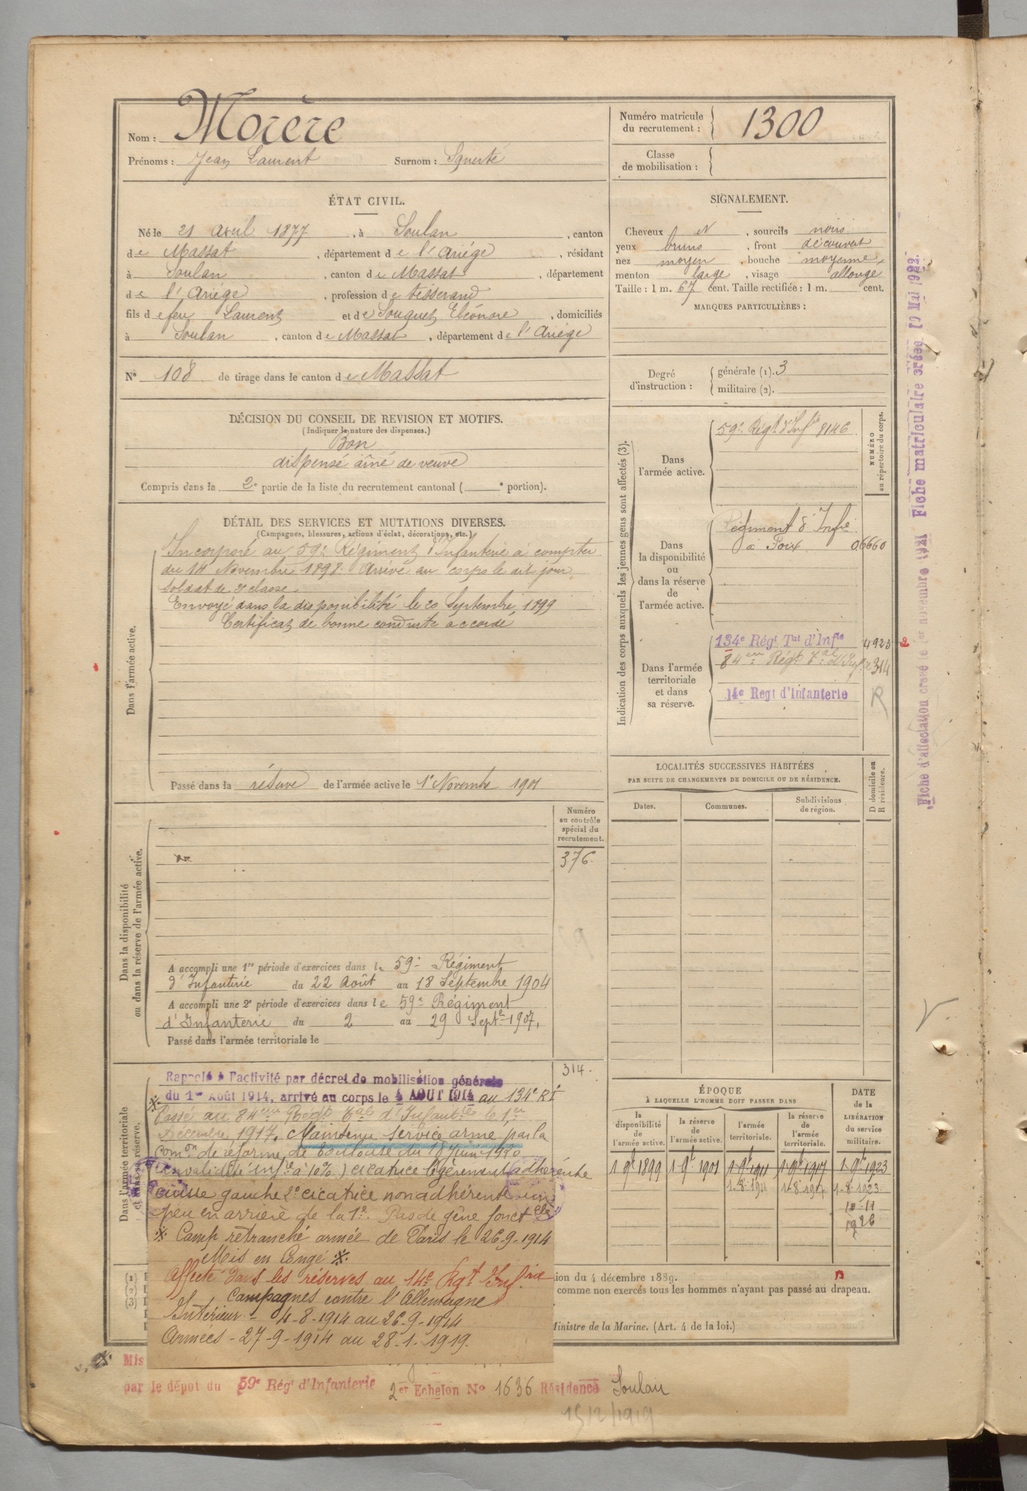 Nom : Morère
Prénoms : Jean Laurent Surnom : Squerté
Numéro matricule du recrutement : 1300
Classe de mobilisation :
ÉTAT CIVIL.
Né le 21 avril 1877, à Soulan, canton
de Massat, département de l'Ariége, résidant
à Soulan, canton de Massat, département
de l'Ariége, profession de tisserand
fils de feu Laurent et de Souquet Eléonore, domiciliés
à Soulan, canton de Massat, département de l'Ariége
N° 108 de tirage dans le canton de Massat
SIGNALEMENT.
Cheveux N, sourcils noirs
yeux bruns, front découvert
nez moyen, bouche moyenne,
menton large, visage allongé
Taille : 1 m. 67 cent. Taille rectifiée : 1 m. cent.
MARQUES PARTICULIÈRES :
Degré d'instruction : générale (1). 3
militaire (2).
DÉCISION DU CONSEIL DE REVISION ET MOTIFS.
(Indiquer la nature des dispenses.)
Bon
dispensé aîné de veuve
Compris dans la 2e partie de la liste du recrutement cantonal ( e portion).
DÉTAIL DES SERVICES ET MUTATIONS DIVERSES.
(Campagnes, blessures, actions d'éclat, décorations, etc.)
Dans l'armée active.
Incorporé au 59e Régiment d'Infanterie à compter
du 14 Novembre 1898. Arrivé au corps le dit jour,
soldat de 2e classe.
Envoyé dans la disponibilité le 20 Septembre 1899
Certificat de bonne conduite accordé
Passé dans la réserve de l'armée active le 1er Novembre 1901
Indication des corps auxquels les jeunes gens sont affectés (3).
NUMÉRO au répertoire du corps.
Dans l'armée active.
59e Régt d'Infie 8146
Dans la disponibilité ou dans la réserve de l'armée active.
Régiment d'Infie
à Foix 06660
Dans l'armée territoriale et dans sa réserve.
134e Régt Tal d'Infie 4928
84eme Régt Tal d'Inf 314
14e Regt d'Infanterie R
Fiche d'affectation créée le 1er novembre 1921 Fiche matriculaire créée 19 Mai 1922.
LOCALITÉS SUCCESSIVES HABITÉES
PAR SUITE DE CHANGEMENTS DE DOMICILE OU DE RÉSIDENCE.
Dates. Communes. Subdivisions de région. D domicile ou R résidence.
Dans la disponibilité ou dans la réserve de l'armée active.
Numéro au contrôle spécial du recrutement.
376
A accompli une 1re période d'exercices dans le 59e Régiment
d'Infanterie du 22 Août au 18 Septembre 1904
A accompli une 2e période d'exercices dans le 59e Régiment
d'Infanterie du 2 au 29 Septbre 1907.
Passé dans l'armée territoriale le
314.
Dans l'armée territoriale et dans sa réserve.
Rappelé à l'activité par décret de mobilisation générale
du 1er Août 1914, arrivé au corps le 4 AOUT 1914 au 134e RI
Passé au 84eme Régt Tal d'Infantie le 1er
Décembre 1917. Maintenu service armé par la
Comon de réforme de Toulouse du 18 Juin 1920
(invalidité infre à 10%) cicatrice légèrement adhérente
cuisse gauche 2e cicatrice non adhérente un
peu en arrière de la 1e. Pas de gêne fonctelle
* Camp retranché armée de Paris le 26-9-1914
Mis en Congé *.
Affecté dans les réserves au 14e Régt Infrie
Campagnes contre l'Allemagne
Intérieur - 4-8-1914 au 26-9-1914
Armées - 27-9-1914 au 28-1-1919.
ÉPOQUE
À LAQUELLE L'HOMME DOIT PASSER DANS
DATE de la LIBÉRATION du service militaire.
la disponibilité de l'armée active. la réserve de l'armée active. l'armée territoriale. la réserve de l'armée territoriale.
1 9bre 1899 1 9bre 1901 1 9bre 1911 1 9bre 1917 1 9bre 1923
1-8-1911 1-8-1917 1-8-1923
10-11
1926
(1)
(2)
(3)
ion du 4 décembre 1889.
comme non exercés tous les hommes n'ayant pas passé au drapeau.
Ministre de la Marine. (Art. 4 de la loi.)
Mis
par le dépôt du 59e Régt d'Infanterie 2er Echelon N° 1636 Résidence Soulan
15/2/1919